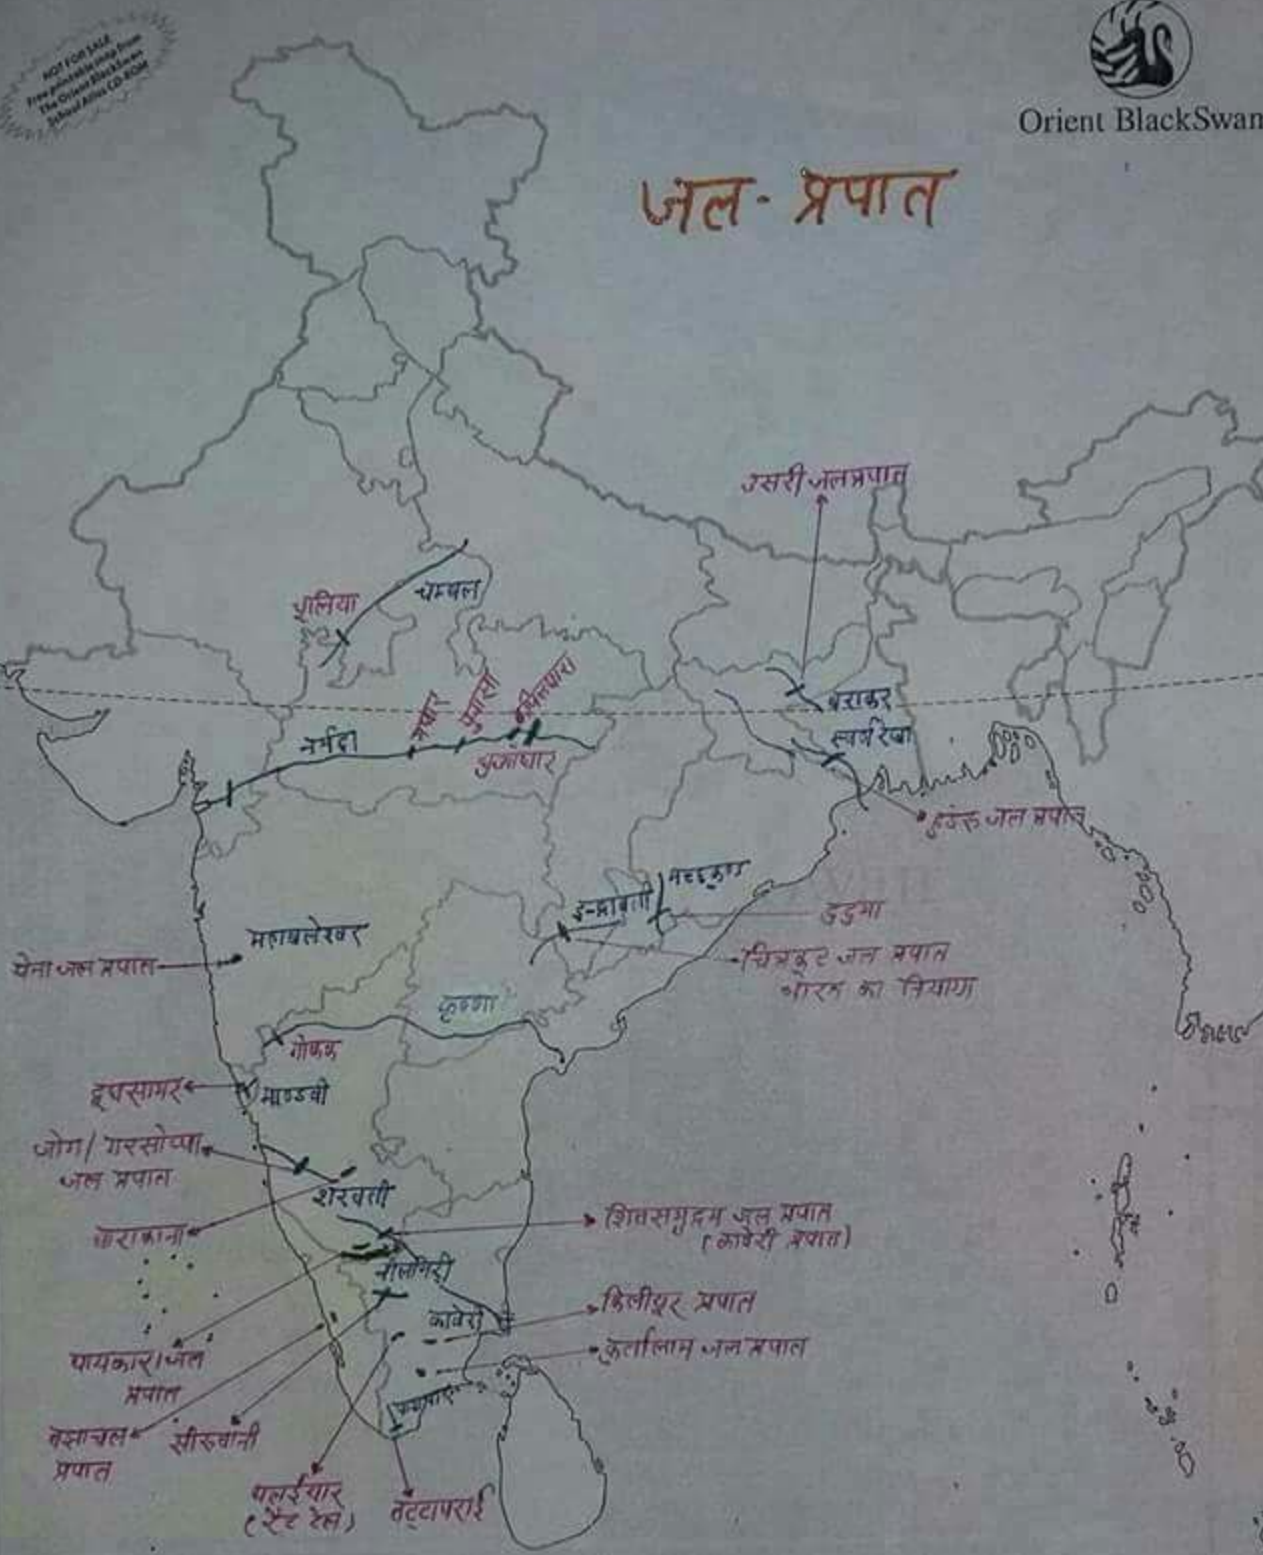 NOT FOR SALE
Free printable map from
The Orient BlackSwan
School Atlas CD-ROM
Orient BlackSwan
जल - प्रपात
उसरी जलप्रपात
चूलिया
चम्बल
बराकर
स्वर्ण रेखा
नर्मदा
मंधार
पुनासा
कपिलधारा
धुआंधार
हुंडरू जल प्रपात
मच्छकुण्ड
इन्द्रावती
डुडुमा
चित्रकूट जल प्रपात
भारत का नियाग्रा
महाबलेश्वर
येना जल प्रपात
कृष्णा
गोकक
दूधसागर
माण्डवी
जोग / गरसोप्पा
जल प्रपात
शरवती
बाराकाना
शिवसमुद्रम जल प्रपात
(कावेरी प्रपात)
नीलगिरी
कावेरी
किलीयूर प्रपात
कुर्तालाम जल प्रपात
पायकारा जल
प्रपात
सीरुवानी
प्रपात
थलईयार
(रैट टेल)
वट्टापराई